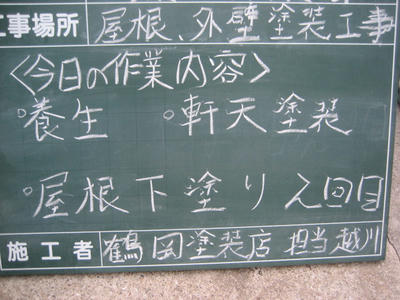 工事場所 屋根、外壁塗装工事
〈今日の作業内容〉
○養生 ○軒天塗装
○屋根下塗り2回目
施工者 鶴岡塗装店 担当越川